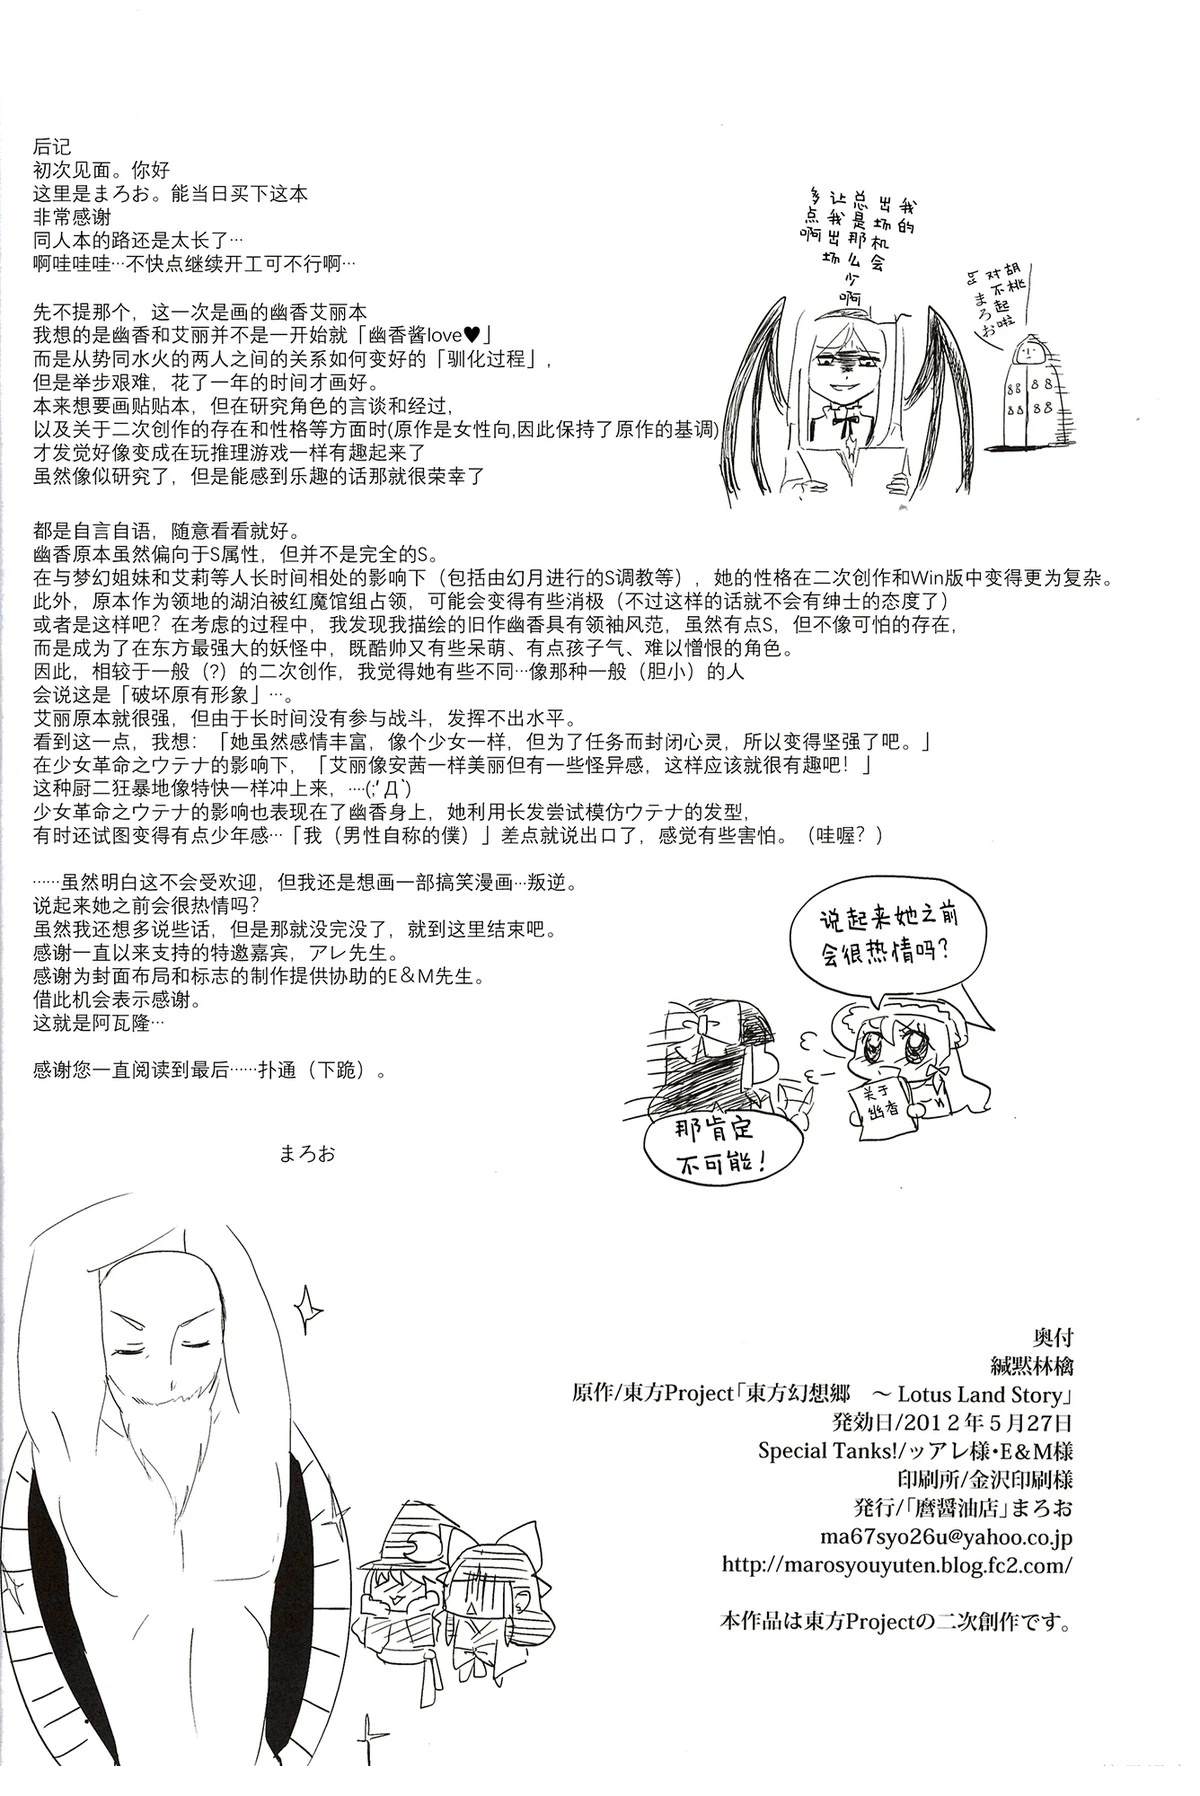 后记
初次见面。你好
这里是まろお。能当日买下这本
非常感谢
同人本的路还是太长了…
啊哇哇哇…不快点继续开工可不行啊…
先不提那个，这一次是画的幽香艾丽本
我想的是幽香和艾丽并不是一开始就「幽香酱love♥」
而是从势同水火的两人之间的关系如何变好的「驯化过程」,
但是举步艰难，花了一年的时间才画好。
本来想要画贴贴本，但在研究角色的言谈和经过,
以及关于二次创作的存在和性格等方面时(原作是女性向,因此保持了原作的基调)
才发觉好像变成在玩推理游戏一样有趣起来了
虽然像似研究了，但是能感到乐趣的话那就很荣幸了
都是自言自语，随意看看就好。
幽香原本虽然偏向于S属性，但并不是完全的S。
在与梦幻姐妹和艾莉等人长时间相处的影响下（包括由幻月进行的S调教等）,她的性格在二次创作和Win版中变得更为复杂。
此外，原本作为领地的湖泊被红魔馆组占领，可能会变得有些消极（不过这样的话就不会有绅士的态度了）
或者是这样吧？在考虑的过程中，我发现我描绘的旧作幽香具有领袖风范，虽然有点S，但不像可怕的存在,
而是成为了在东方最强大的妖怪中，既酷帅又有些呆萌、有点孩子气、难以憎恨的角色。
因此，相较于一般（?）的二次创作，我觉得她有些不同…像那种一般（胆小）的人
会说这是「破坏原有形象」…。
艾丽原本就很强，但由于长时间没有参与战斗，发挥不出水平。
看到这一点，我想：「她虽然感情丰富，像个少女一样，但为了任务而封闭心灵，所以变得坚强了吧。」
在少女革命之ウテナ的影响下，「艾丽像安茜一样美丽但有一些怪异感，这样应该就很有趣吧！」
这种厨二狂暴地像特快一样冲上来，…·(;´Д`)
少女革命之ウテナ的影响也表现在了幽香身上，她利用长发尝试模仿ウテナ的发型,
有时还试图变得有点少年感…「我（男性自称的僕）」差点就说出口了，感觉有些害怕。（哇喔？）
……虽然明白这不会受欢迎，但我还是想画一部搞笑漫画…叛逆。
说起来她之前会很热情吗?
虽然我还想多说些话，但是那就没完没了，就到这里结束吧。
感谢一直以来支持的特邀嘉宾，アレ先生。
感谢为封面布局和标志的制作提供协助的E＆M先生。
借此机会表示感谢。
这就是阿瓦隆…
感谢您一直阅读到最后……扑通（下跪）。
まろお
我的
出场机会
总是那么少啊
让我出场
多点啊
胡桃
对不起啦
by まろお
说起来她之前
会很热情吗?
关于
幽香
那肯定
不可能!
奥付
緘黙林檎
原作/東方Project「東方幻想郷　～ Lotus Land Story」
発効日/2012年5月27日
Special Tanks!/ッアレ様・E＆M様
印刷所/金沢印刷様
発行/「麿醤油店」まろお
ma67syo26u@yahoo.co.jp
http://marosyouyuten.blog.fc2.com/
本作品は東方Projectの二次創作です。